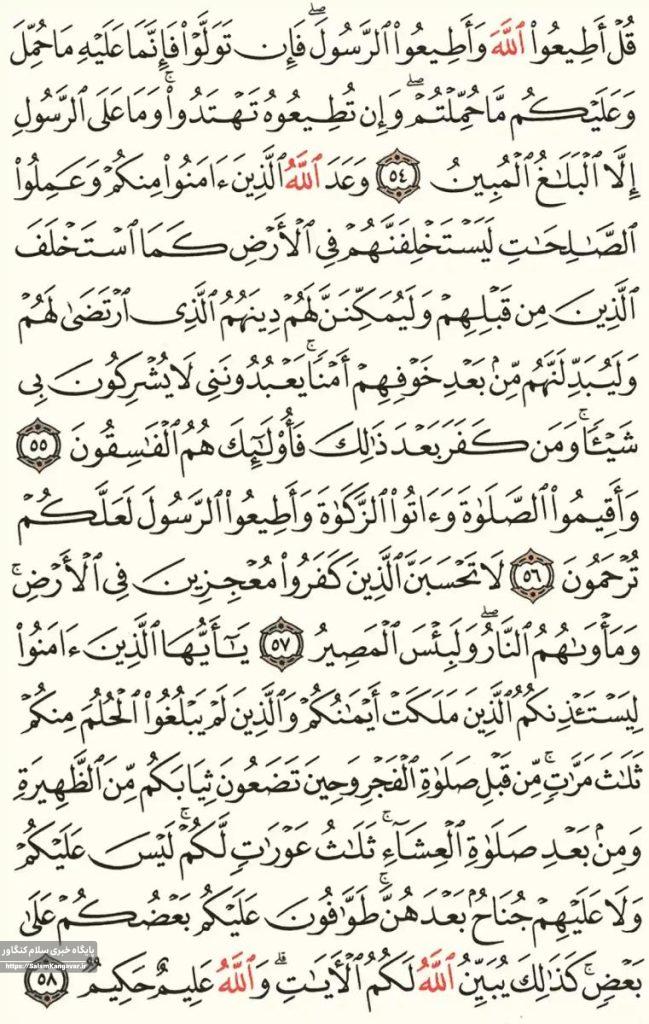 قُلْ أَطِيعُوا۟ ٱللَّهَ وَأَطِيعُوا۟ ٱلرَّسُولَ ۖ فَإِن تَوَلَّوْا۟ فَإِنَّمَا عَلَيْهِ مَا حُمِّلَ
وَعَلَيْكُم مَّا حُمِّلْتُمْ ۖ وَإِن تُطِيعُوهُ تَهْتَدُوا۟ ۚ وَمَا عَلَى ٱلرَّسُولِ
إِلَّا ٱلْبَلَٰغُ ٱلْمُبِينُ ٥٤ وَعَدَ ٱللَّهُ ٱلَّذِينَ ءَامَنُوا۟ مِنكُمْ وَعَمِلُوا۟
ٱلصَّٰلِحَٰتِ لَيَسْتَخْلِفَنَّهُمْ فِى ٱلْأَرْضِ كَمَا ٱسْتَخْلَفَ
ٱلَّذِينَ مِن قَبْلِهِمْ وَلَيُمَكِّنَنَّ لَهُمْ دِينَهُمُ ٱلَّذِى ٱرْتَضَىٰ لَهُمْ
وَلَيُبَدِّلَنَّهُم مِّنۢ بَعْدِ خَوْفِهِمْ أَمْنًا ۚ يَعْبُدُونَنِى لَا يُشْرِكُونَ بِى
شَيْـًٔا ۚ وَمَن كَفَرَ بَعْدَ ذَٰلِكَ فَأُو۟لَٰٓئِكَ هُمُ ٱلْفَٰسِقُونَ ٥٥
وَأَقِيمُوا۟ ٱلصَّلَوٰةَ وَءَاتُوا۟ ٱلزَّكَوٰةَ وَأَطِيعُوا۟ ٱلرَّسُولَ لَعَلَّكُمْ
تُرْحَمُونَ ٥٦ لَا تَحْسَبَنَّ ٱلَّذِينَ كَفَرُوا۟ مُعْجِزِينَ فِى ٱلْأَرْضِ ۚ
وَمَأْوَىٰهُمُ ٱلنَّارُ ۖ وَلَبِئْسَ ٱلْمَصِيرُ ٥٧ يَٰٓأَيُّهَا ٱلَّذِينَ ءَامَنُوا۟
لِيَسْتَـْٔذِنكُمُ ٱلَّذِينَ مَلَكَتْ أَيْمَٰنُكُمْ وَٱلَّذِينَ لَمْ يَبْلُغُوا۟ ٱلْحُلُمَ مِنكُمْ
ثَلَٰثَ مَرَّٰتٍ ۚ مِّن قَبْلِ صَلَوٰةِ ٱلْفَجْرِ وَحِينَ تَضَعُونَ ثِيَابَكُم مِّنَ ٱلظَّهِيرَةِ
وَمِنۢ بَعْدِ صَلَوٰةِ ٱلْعِشَآءِ ۚ ثَلَٰثُ عَوْرَٰتٍ لَّكُمْ ۚ لَيْسَ عَلَيْكُمْ
وَلَا عَلَيْهِمْ جُنَاحٌۢ بَعْدَهُنَّ ۚ طَوَّٰفُونَ عَلَيْكُم بَعْضُكُمْ عَلَىٰ
بَعْضٍ ۚ كَذَٰلِكَ يُبَيِّنُ ٱللَّهُ لَكُمُ ٱلْءَايَٰتِ ۗ وَٱللَّهُ عَلِيمٌ حَكِيمٌ ٥٨
پایگاه خبری سلام کنگاور
https://SalamKangavar.ir